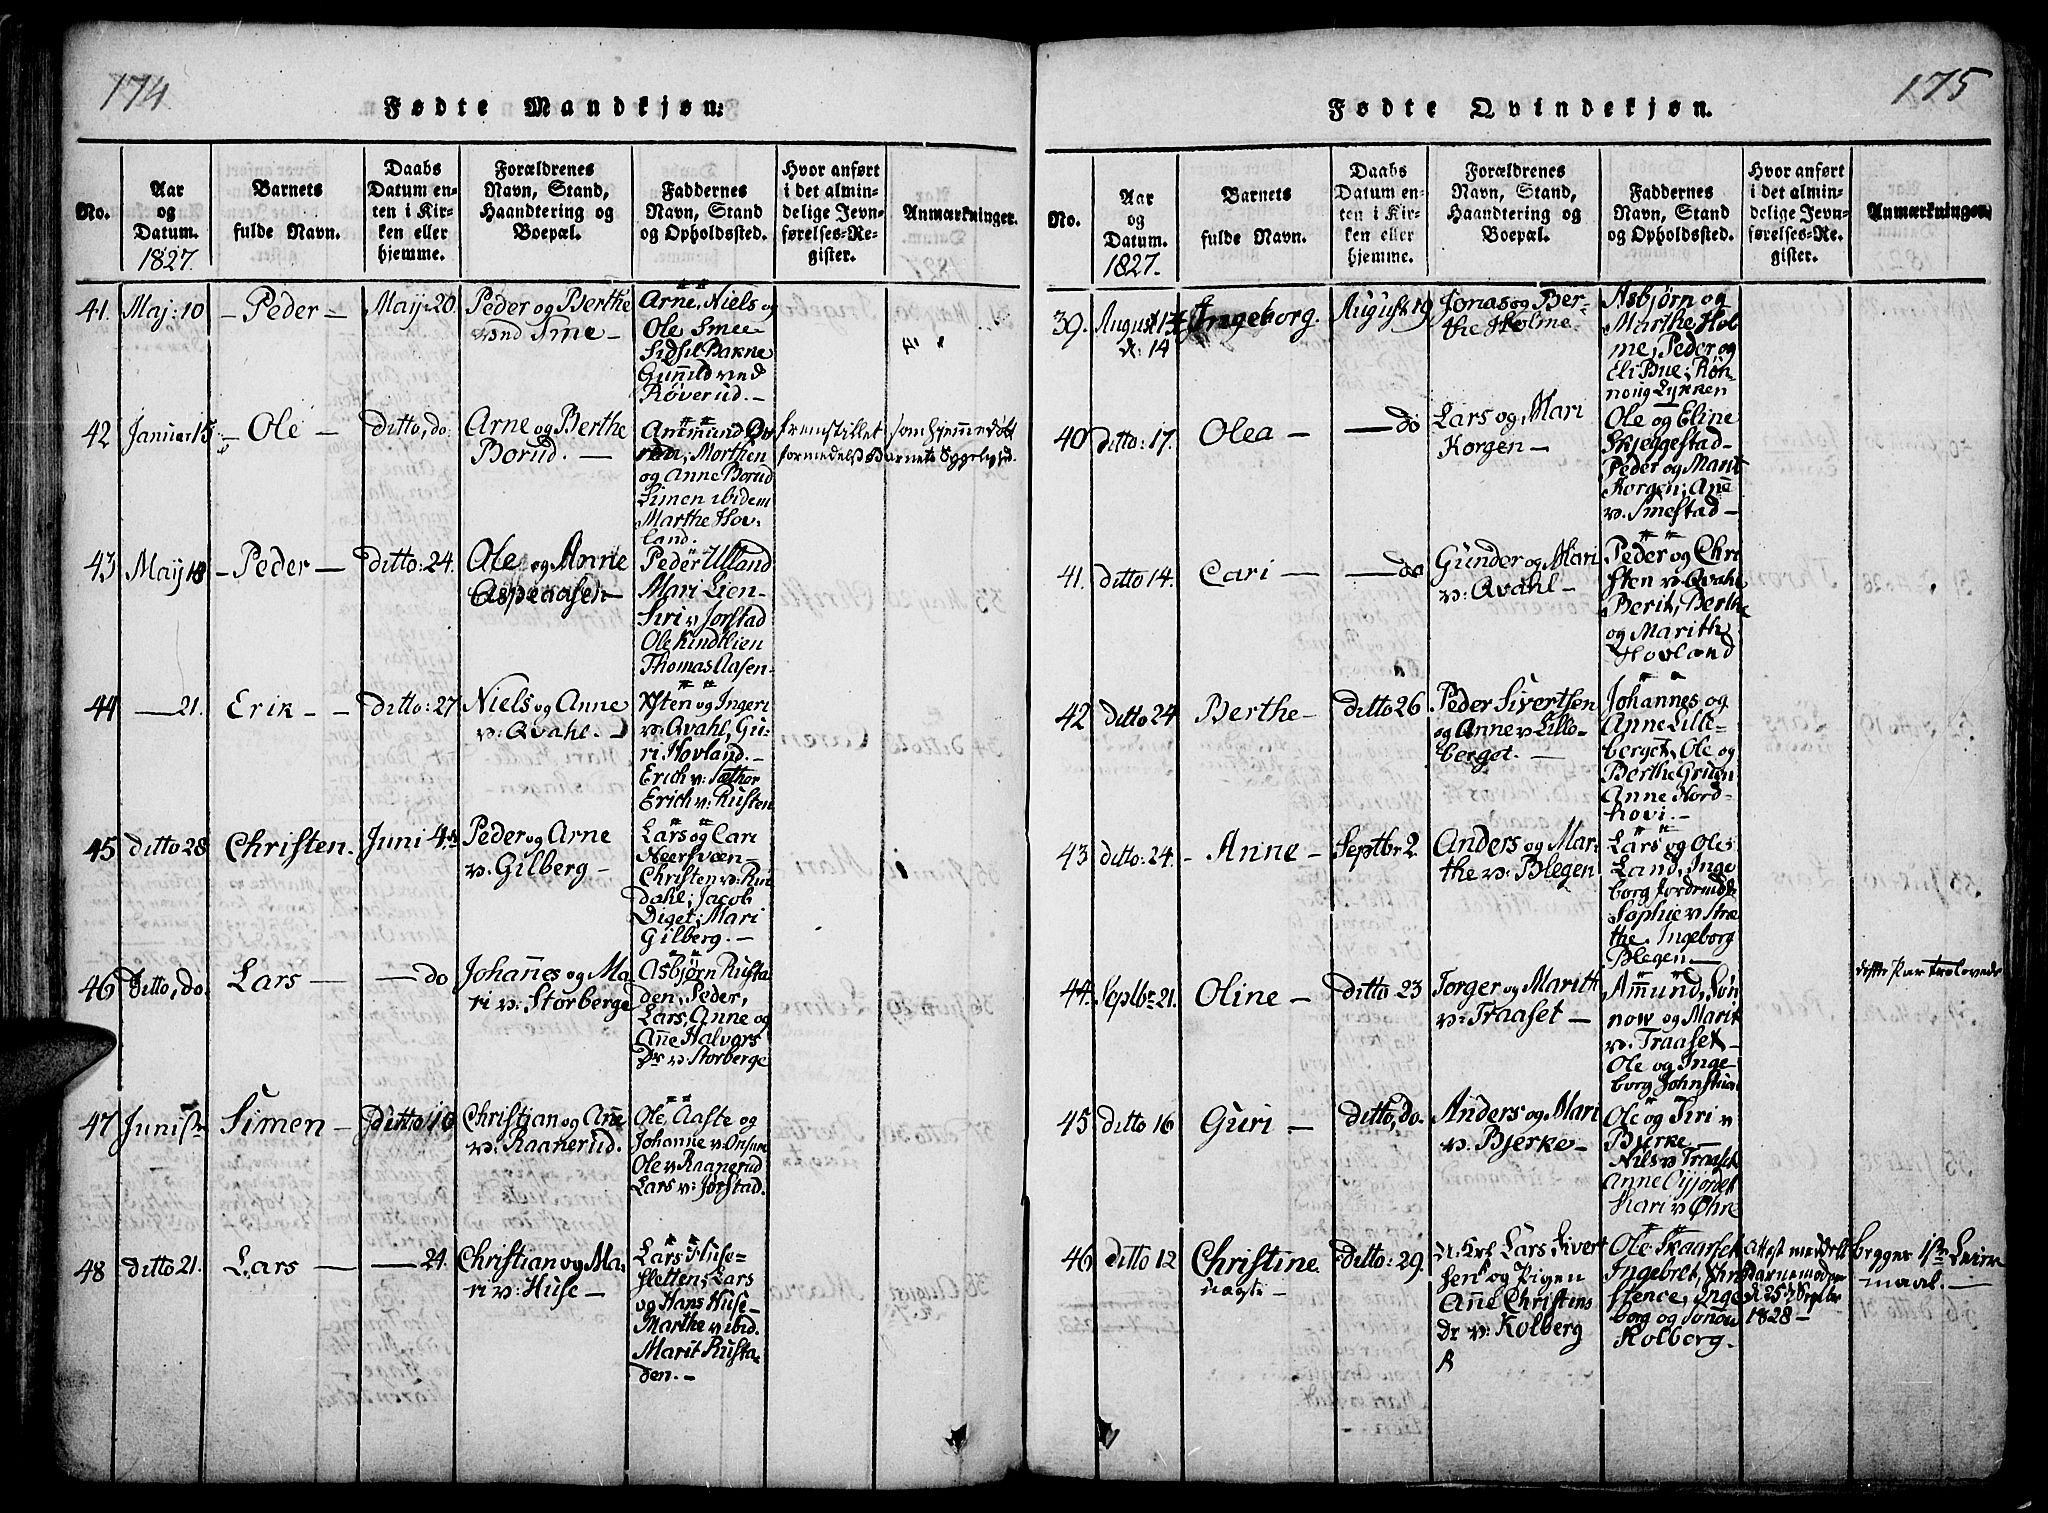 174
Fødte Mandkjøn:
No.
Aar
og
Datum.
1827.
Barnets
fulde Navn.
Daabs
Datum en-
ten i Kir-
ken eller
hjemme.
Forældrenes
Navn, Stand,
Haandtering og
Boepæl.
Faddernes
Navn, Stand
og Opholdssted.
Hvor anført
i det almin-
delige Jevn-
førelses-Re-
gister.
Anmærkninger.
41.
Maj: 10
- Peder -
Maij: 20.
Peder og Berthe
vnd Sme -
Arne, Niels og
Ole Smee
Sidsil Bakne
Gunild ved
Røverud. -
42
Januar 15
- Ole
Ditto, do.
Arne og Berthe
Borud. -
Morthen
og Anne Borud
Simen ibidem
Marthe Hov-
land.
fremstillet som hjemmedøbt
formedelst Barnets Sygelighed.
43
Maij 18
- Peder -
Ditto: 24.
Ole og Anne
Aspeaasen -
Peder Ulland
Mari Lien -
Siri v Jorstad
Ole Kindlien
Thomas Aasen -
44
- 21.
Erik - -
Ditto: 27
Niels og Anne
v: Qvahl. -
Ysten og Ingeri
v: Qvahl, Gu-
ri Hovland. -
Erich v: Sæther
Erich v: Rusten
45
ditto 28
Christen.
Juni 4de
Peder og Arne
v: Gilberg -
Lars og Cari
Neersvæn -
Christen v: Rui
Dahl; Jacob
Diget; Mari
Gilberg. -
46
Ditto, do.
Lars -
- do
Johannes og Ma
ri v: Storberge
Asbjørn Rusta
den, Peder,
Lars, Anne og
Anne Halvors
Dr v: Storberge
47
Juni 1ste
Simen -
Ditto 10
Christian og Anne
v: Raanerud.
Ole, Aaste og
Johanne v:
Ole v Raanerud
Lars v: Jorstad.
48
ditto 21.
Lars -
- 24.
Christian og Ma-
ri v: Huse -
Lars Huse-
sletten; Lars
og Hans Huse -
Marthe v ibid.
Marit Rusta-
den. -
175
Fødte Qvindekjøn.
No.
Aar
og
Datum.
1827.
Barnets
fulde Navn.
Daabs
Datum en-
ten i Kir-
ken eller
hjemme.
Forældrenes
Navn, Stand,
Haandtering og
Boepæl.
Faddernes
Navn, Stand
og Opholdssted.
Hvor anført
i det almin-
delige Jevn-
førelses-Re-
gister.
Anmærkninger.
39.
August
d: 14
Ingeborg.
August 19
Jonas og Ber-
the Holme -
Asbjørn og
Marthe Hol
me; Peder og
Eli Bue; Røn-
noug Lykken
40
ditto: 17.
Olea -
- do
Lars og Mari
Korgen -
Ole og Eline
Skjeggestad -
Peder og Marit
Korgen; Anne
v. Smestad -
41.
ditto 14.
Cari -
- do
Gunder og Mari
v: Qvahl -
Peder og Chri
sten v: Qvahl
Berit, Berthe
og Marith
Hovland
42
ditto 24
Berthe -
ditto 26
Peder Sivertsen
og Anne v Lille-
berget. -
Johannes og
Anne Lille-
berget, Ole og
Berthe Gruen
Anne Nord-
hovi. -
43
ditto: 24.
- Anne -
Septbr 2
Anders og Mar-
the v: Blegen
Lars og Ole
Land, Inge
borg
Sophie v Stræ
the. Ingeborg
Blegen -
44.
Septbr 21.
Oline -
ditto 23
Torger og Marith
v: Traaset -
Amund, Søn
now og Marit
v: Traaset -
Ole og Inge-
borg Johnstuen
dette Par trolovede
45
ditto 16
Guri -
Ditto, do.
Anders og Mari
v: Bjerke -
Ole og Siri v
Bjerke -
Nils v: Traaset
Anne
Mari v Øhre
46
ditto 12
Christine
uægte -
Ditto: 29.
Lars Sivert
sen og Pigen
Anne Christens
Dr v: Kolberg
Ole Skaarset
Ingebret, Chri
stence, Inge
borg og Sønow
Kolberg. -
Attest meddelt
Barnemoderen
d 25 Septbr
1828 -
begges 1ste Leier-
maal. -